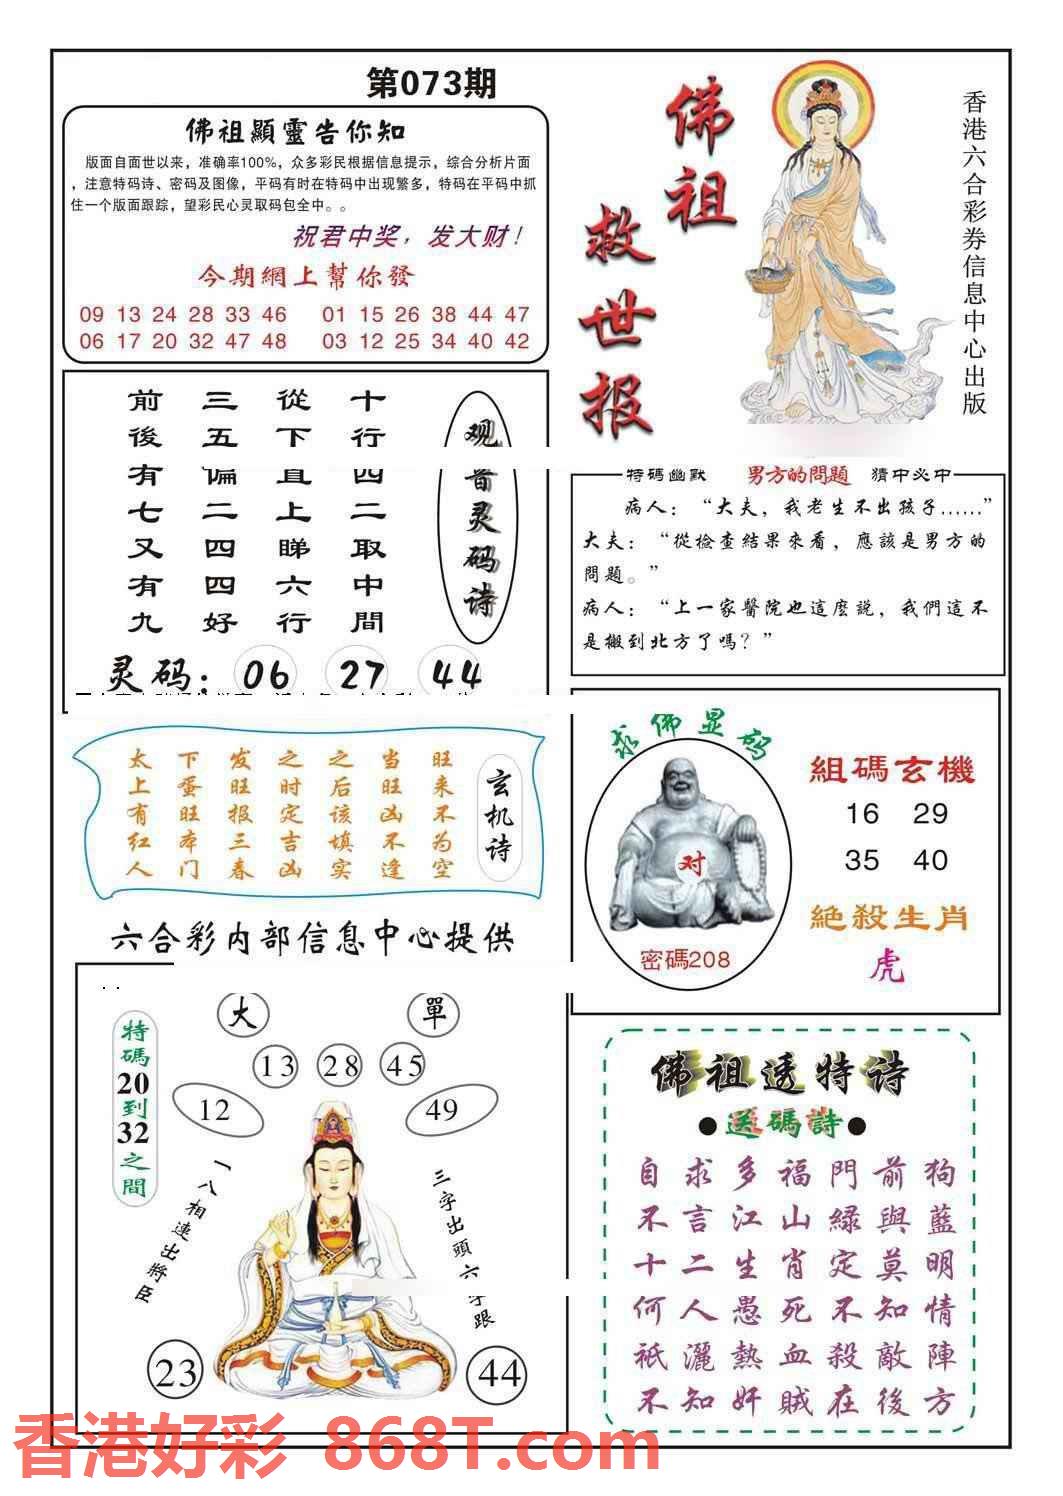 第073期
佛祖顯靈告你知
版面自面世以来，准确率100%，众多彩民根据信息提示，综合分析片面
，注意特码诗、密码及图像，平码有时在特码中出现繁多，特码在平码中抓
住一个版面跟踪，望彩民心灵取码包全中。。
祝君中奖，发大财！
今期網上幫你發
09 13 24 28 33 46 01 15 26 38 44 47
06 17 20 32 47 48 03 12 25 34 40 42
佛祖
救世报
香港六合彩券信息中心出版
观音灵码诗
十行四二取中間
從下直上睇六行
三五偏二四四好
前後有七又有九
灵码：06 27 44
特碼幽默 男方的問題 猜中必中
病人：“大夫，我老生不出孩子……”
大夫：“從檢查結果來看，應該是男方的
問題。”
病人：“上一家醫院也這麽說，我們這不
是搬到北方了嗎？”
玄机诗
旺来不为空
当旺凶不逢
之后该填实
之时定吉凶
发旺报三春
下蛋旺本门
太上有红人
求佛显码
对
密碼208
組碼玄機
16 29
35 40
絕殺生肖
虎
六合彩内部信息中心提供
大 單
13 28 45
12 49
特碼20到32之間
一八相連出將臣
三字出頭六字跟
23 44
佛祖透特诗
●送碼詩●
自求多福門前狗
不言江山綠與藍
十二生肖定莫明
何人愚死不知情
祇灑熱血殺敵陣
不知奸賊在後方
香港好彩 868T.com